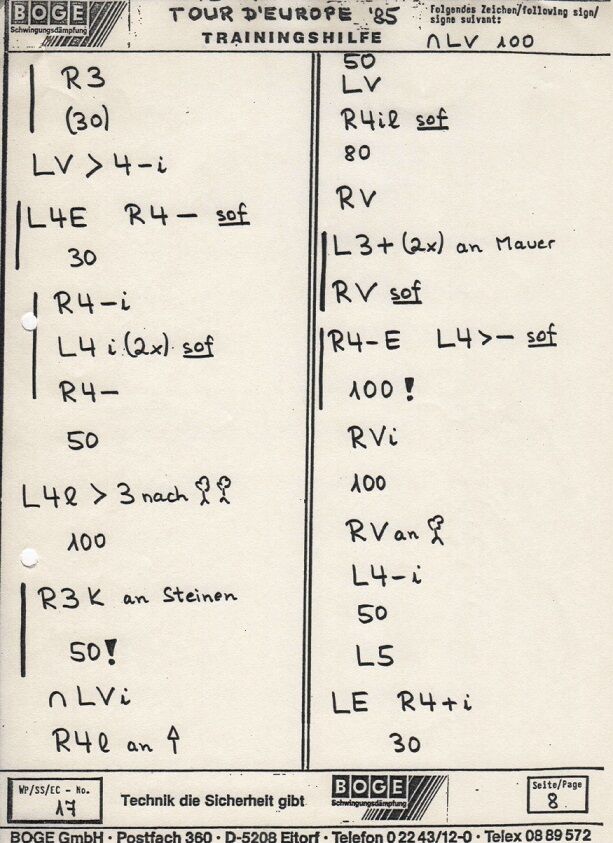 BOGE
Schwingungsdämpfung
TOUR D'EUROPE '85
TRAININGSHILFE
Folgendes Zeichen/following sign/
signe suivant:
∩LV 100
R3
(30)
LV > 4-i
L4E R4- sof
30
R4-i
L4 i (2x) sof
R4-
50
L4l > 3 nach
100
R3K an Steinen
50!
∩LVi
R4l an ↑
50
LV
R4il sof
80
RV
L3+ (2x) an Mauer
RV sof
R4-E L4>- sof
100!
RVi
100
RV an
L4-i
50
L5
LE R4+i
30
WP/SS/EC - No.
17
Technik die Sicherheit gibt
BOGE
Schwingungsdämpfung
Seite/Page
8
BOGE GmbH · Postfach 360 · D-5208 Eitorf · Telefon 0 22 43/12-0 · Telex 08 89 572